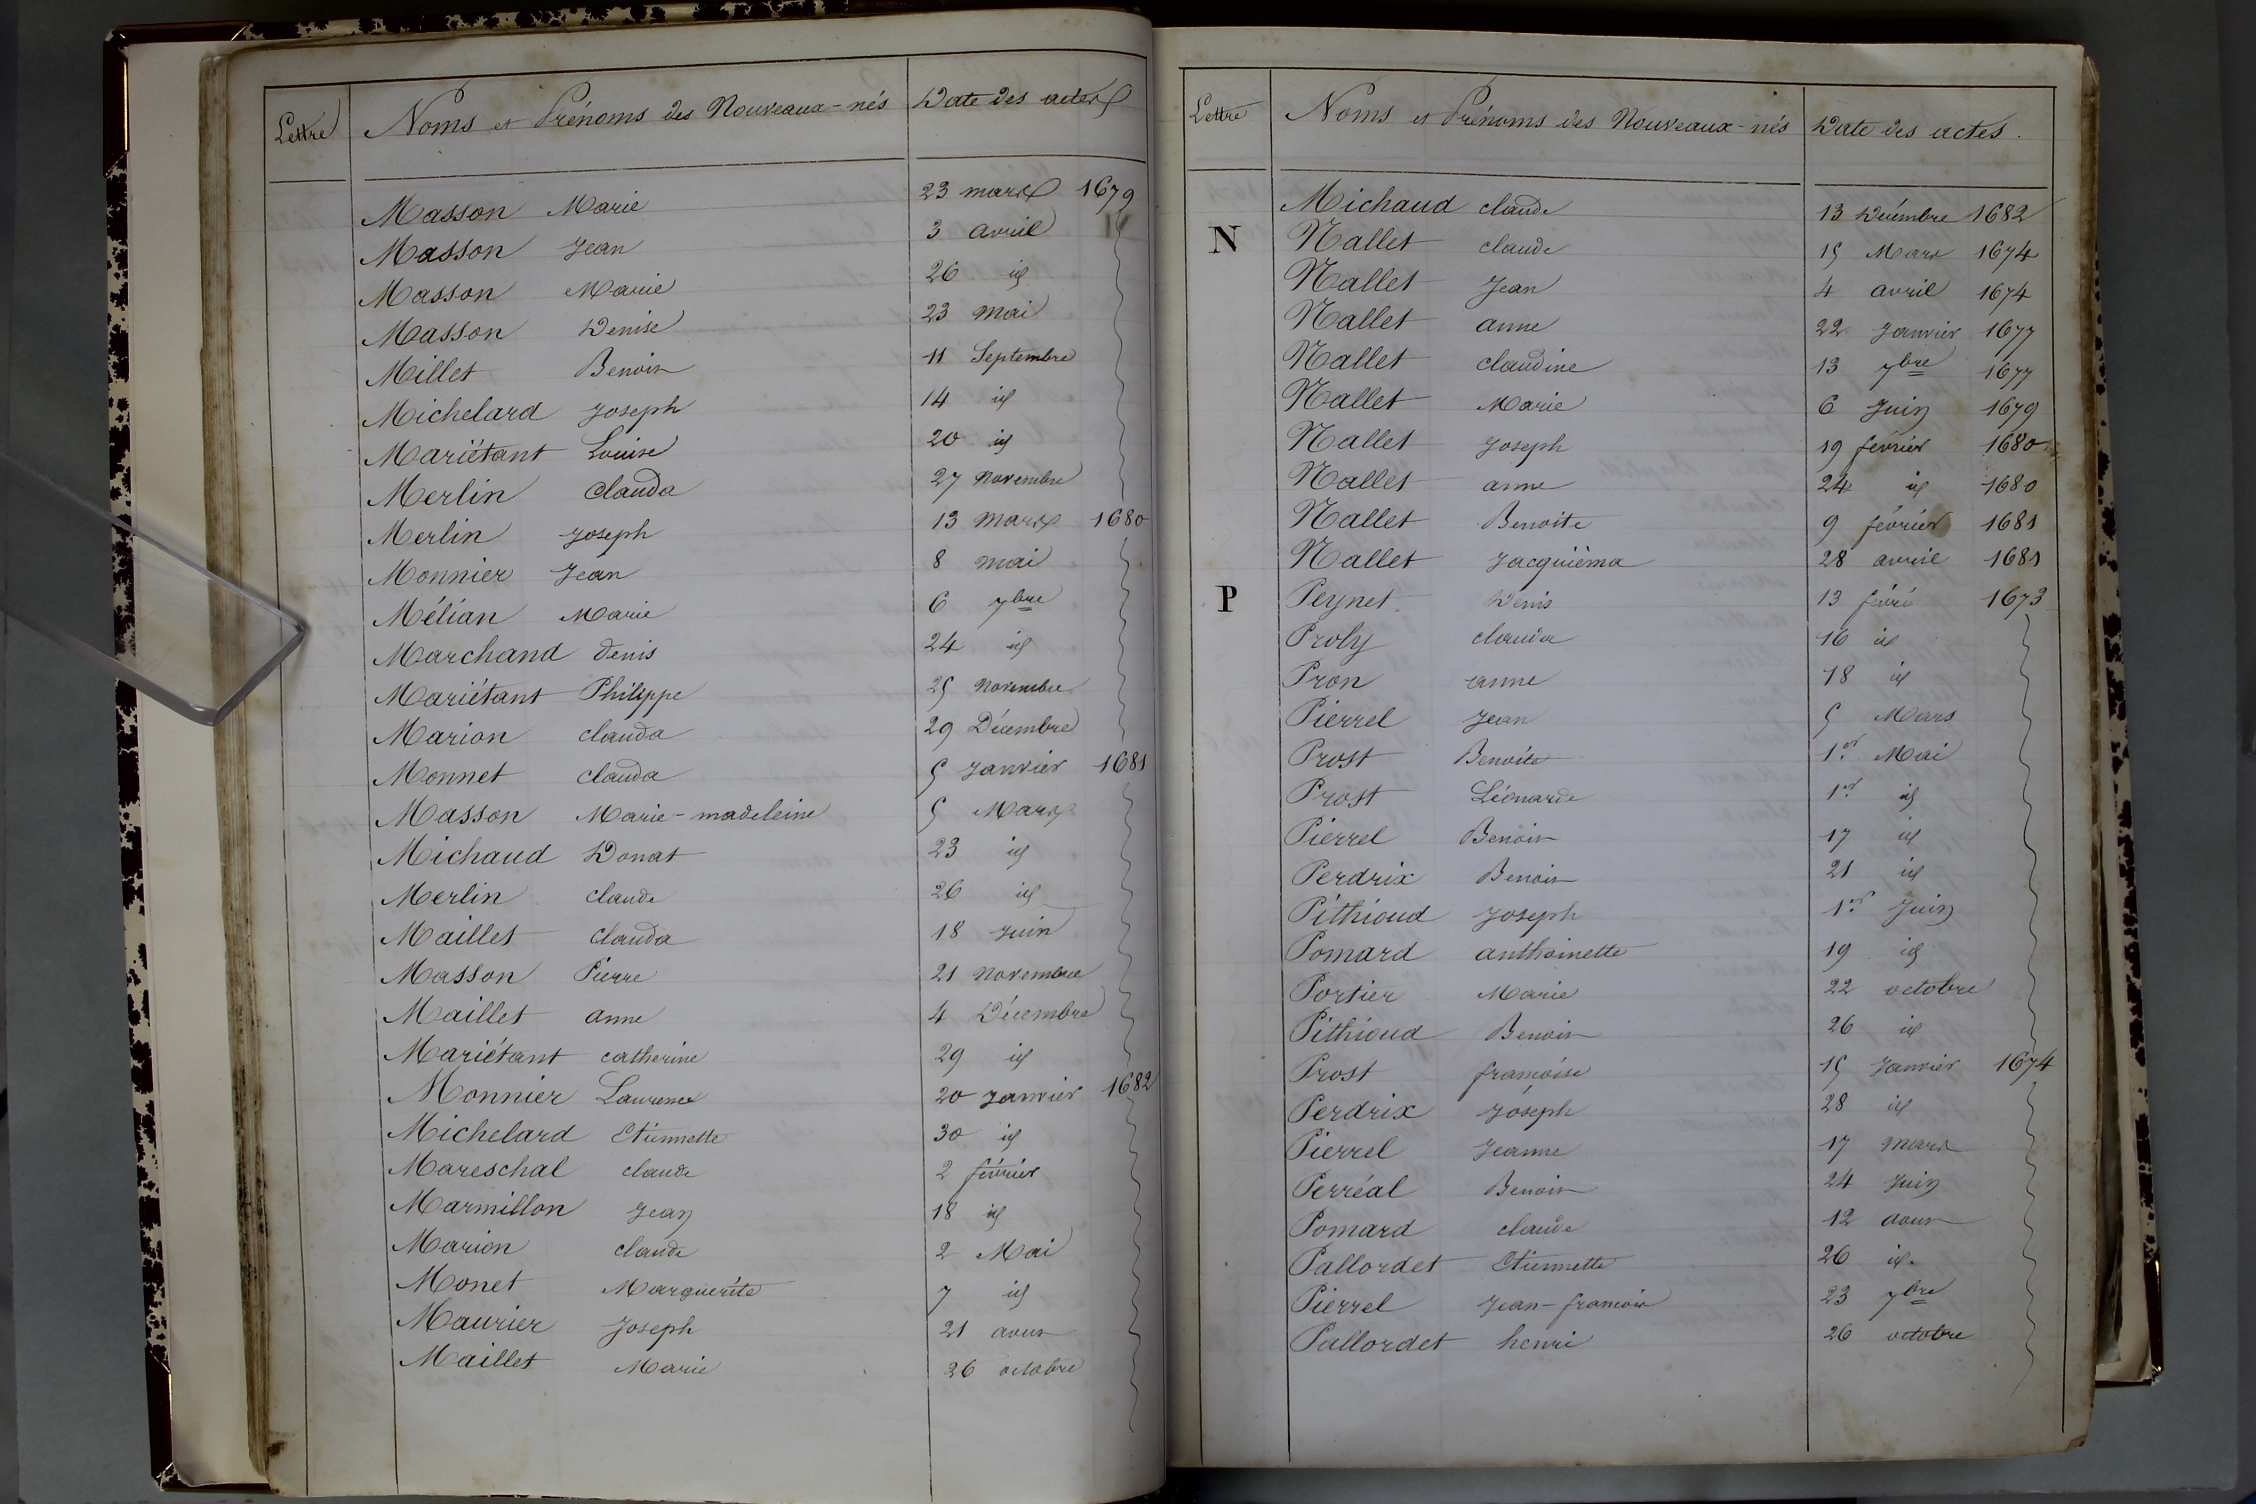 Lettre Noms et Prénoms des Nouveaux-nés Date des actes
Masson Marie 23 mars 1679
Masson Jean 3 avril
Masson Marie 26 id
Masson Denise 23 mai
Millet Benoit 11 Septembre
Michelard Joseph 14 id
Mariétant Louise 20 id
Merlin Clauda 27 novembre
Merlin Joseph 13 mars 1680
Monnier Jean 8 mai
Mélian Marie 6 7bre
Marchand Denis 24 id
Mariétant Philippe 25 novembre
Marion clauda 29 Décembre
Monnet clauda 5 Janvier 1681
Masson Marie-madeleine 5 Mars
Michaud Donat 23 id
Merlin claude 26 id
Maillet clauda 18 Juin
Masson Pierre 21 novembre
Maillet anne 4 Décembre
Mariétant catherine 29 id
Monnier Laurence 20 Janvier 1682
Michelard Etiennette 30 id
Mareschal claude 2 février
Marmillon Jean 18 id
Marion claude 2 Mai
Monet Marguerite 7 id
Maurier Joseph 21 aout
Maillet Marie 26 octobre
Lettre Noms et Prénoms des Nouveaux-nés Date des actes.
Michaud claude 13 Décembre 1682
N Nallet claude 15 Mars 1674
Nallet Jean 4 avril 1674
Nallet anne 22 Janvier 1677
Nallet claudine 13 7bre 1677
Nallet Marie 6 Juin 1679
Nallet Joseph 19 février 1680
Nallet anne 24 id 1680
Nallet Benoite 9 février 1681
Nallet Jacquièma 28 avril 1681
P Peynet Denis 13 févr 1673
Proly clauda 16 id
Pron anne 18 id
Pierrel Jean 5 Mars
Prost Benoite 1er Mai
Prost Léonarde 1er id
Pierrel Benoit 17 id
Perdrix Benoit 21 id
Pithioud Joseph 1er Juin
Pomard anthoinette 19 id
Portier Marie 22 octobre
Pithioud Benoit 26 id
Prost francoise 15 Janvier 1674
Perdrix Joseph 28 id
Pierrel Jeanne 17 mars
Perréal Benoit 24 Juin
Pomard claude 12 aout
Pallordet Etiennette 26 id.
Pierrel Jean-francois 23 7bre
Pallordet henri 26 octobre